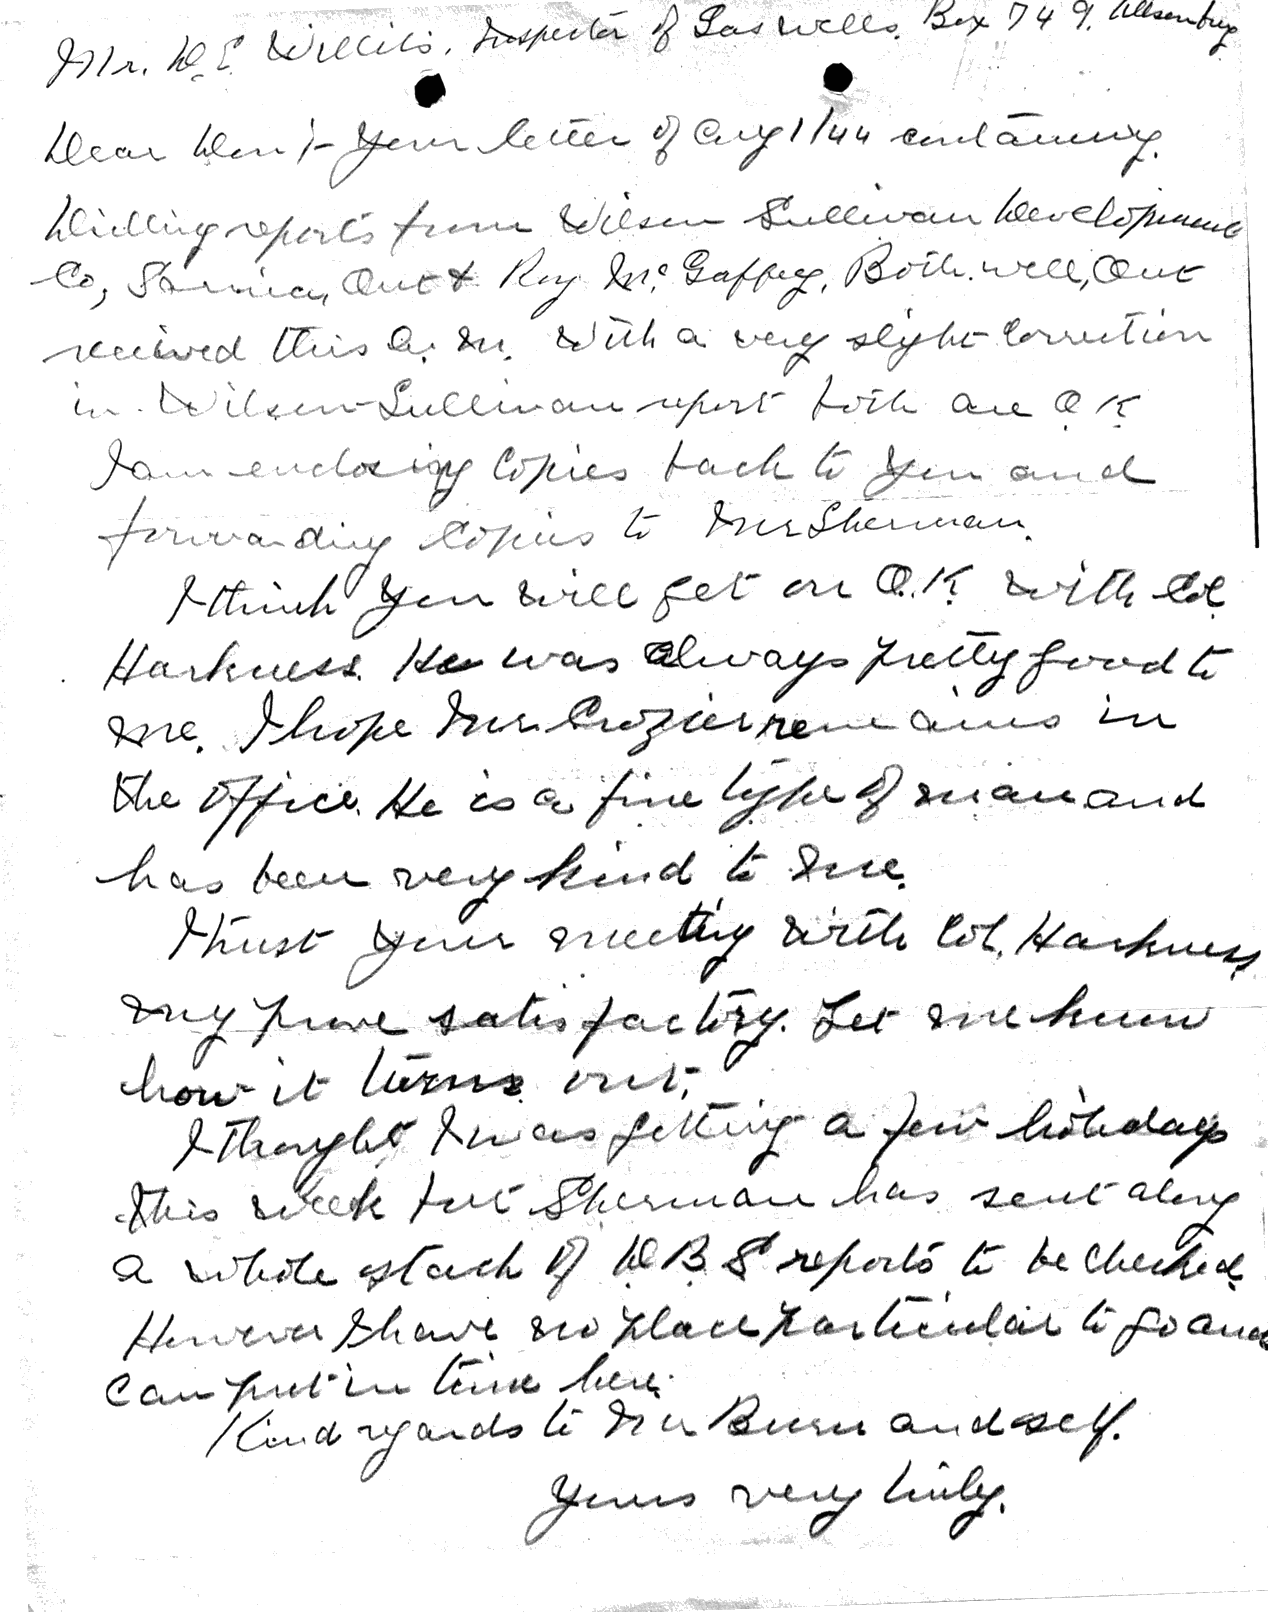 Mr. D. E. Willits, Inspector of Gas wells. Box 749,
Dear Don:- Your letter of Aug 1/44 containing
Drilling reports from Wilson Sullivan Development
Co, Sarnia, Ont & Roy McGaffey, Bothwell, Ont
received this A. M. With a very slight correction
in Wilson-Sullivan report both are O K
I am enclosing Copies back to you and
forwarding Copies to Mr Sherman.
I think you will get on O.K. with Col
Harkness. He was always pretty good to
me. I hope Mr. Crozier remains in
the office. He is a fine type of man and
has been very kind to me.
I trust your meeting with Col. Harkness
my prove satisfactory. Let me know
how it turns out.
I thought I was getting a few holidays
this week but Sherman has sent along
a whole stack of D B S reports to be checked.
However I have no place particular to go and
can put in time here.
Kind regards to Mr Burn and self.
Yours very truly.